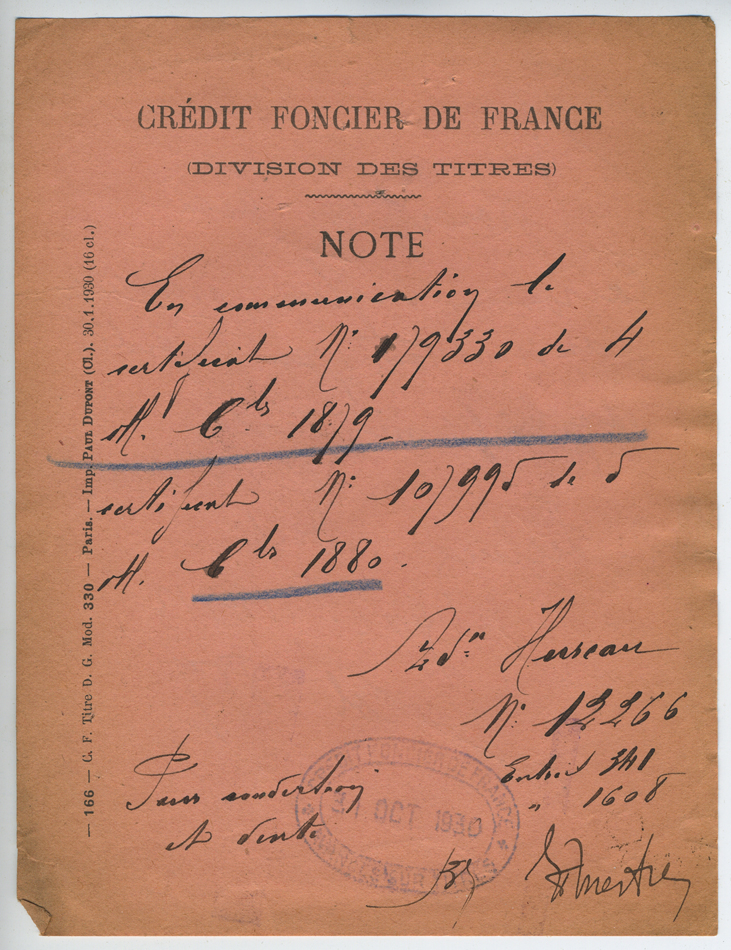 CRÉDIT FONCIER DE FRANCE
(DIVISION DES TITRES)
NOTE
En communication le
certificat N° 179330 de 4
Cles 1879
certificat N° 107995 de 5
Cles 1880.
Hureau
N° 12266
Entrées 341
" 1608
Pour conversion
et vente
31 OCT 1930
— 166 — C. F. Titre D. G. Mod. 330 — Paris. — Imp. PAUL DUPONT (Cl.). 30.1.1930 (16 cl.)